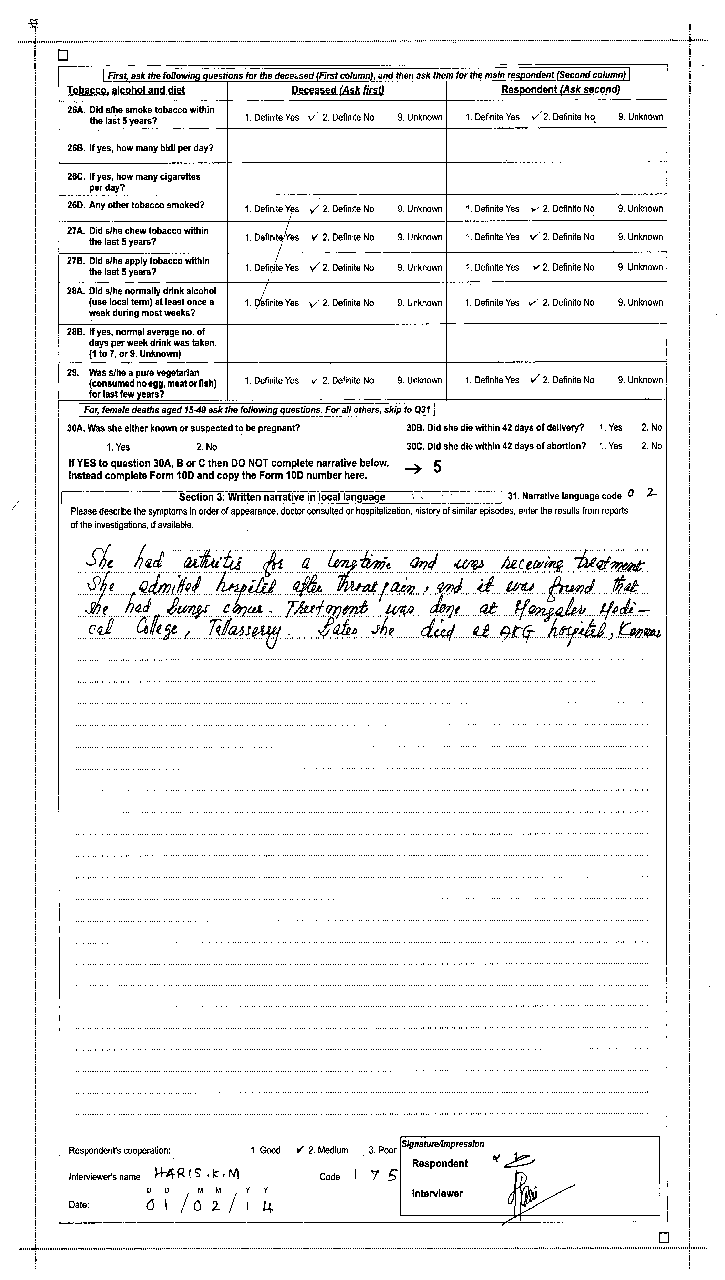 First, ask the following questions for the deceased (First column), and then ask them for the main respondent (Second column)
Tobacco, alcohol and diet Deceased (Ask first) Respondent (Ask second)
26A. Did s/he smoke tobacco within the last 5 years? 1. Definite Yes ✓ 2. Definite No 9. Unknown 1. Definite Yes ✓ 2. Definite No 9. Unknown
26B. If yes, how many bidi per day?
26C. If yes, how many cigarettes per day?
26D. Any other tobacco smoked? 1. Definite Yes ✓ 2. Definite No 9. Unknown 1. Definite Yes ✓ 2. Definite No 9. Unknown
27A. Did s/he chew tobacco within the last 5 years? 1. Definite Yes ✓ 2. Definite No 9. Unknown 1. Definite Yes ✓ 2. Definite No 9. Unknown
27B. Did s/he apply tobacco within the last 5 years? 1. Definite Yes ✓ 2. Definite No 9. Unknown 1. Definite Yes ✓ 2. Definite No 9. Unknown
28A. Did s/he normally drink alcohol (use local term) at least once a week during most weeks? 1. Definite Yes ✓ 2. Definite No 9. Unknown 1. Definite Yes ✓ 2. Definite No 9. Unknown
28B. If yes, normal average no. of days per week drink was taken. (1 to 7, or 9. Unknown)
29. Was s/he a pure vegetarian (consumed no egg, meat or fish) for last few years? 1. Definite Yes ✓ 2. Definite No 9. Unknown 1. Definite Yes ✓ 2. Definite No 9. Unknown
For, female deaths aged 15-49 ask the following questions. For all others, skip to Q31
30A. Was she either known or suspected to be pregnant? 30B. Did she die within 42 days of delivery? 1. Yes 2. No
1. Yes 2. No 30C. Did she die within 42 days of abortion? 1. Yes 2. No
If YES to question 30A, B or C then DO NOT complete narrative below.
Instead complete Form 10D and copy the Form 10D number here. → 5
Section 3: Written narrative in local language 31. Narrative language code 0 2
Please describe the symptoms in order of appearance, doctor consulted or hospitalization, history of similar episodes, enter the results from reports
of the investigations, if available.
She had arthritis for a longtime and was receiving treatment
She admitted hospital after throat pain, and it was found that
she had lungs cancer. Treetment was done at Mangalor Medi-
cal College, Tellasserry. Later she died at AKG hospital, Kannur
Respondent's cooperation: 1 Good ✓ 2. Medium 3. Poor Signature/Impression
Respondent
Interviewer's name HARIS.K.M Code 1 7 5
Interviewer
D D M M Y Y
Date: 01/02/14